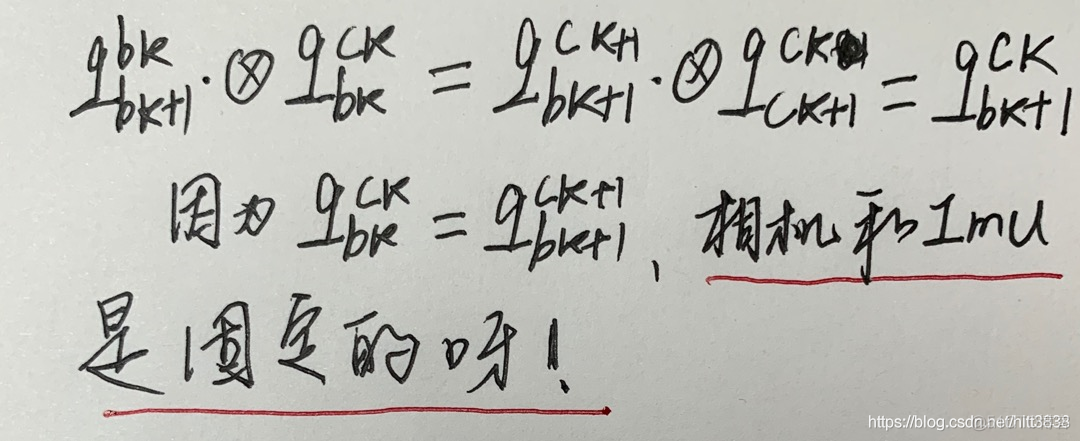 q_{bk+1}^{bk} · ⊗ q_{bk}^{ck} = q_{bk+1}^{ck+1} · ⊗ q_{ck+1}^{ck} = q_{bk+1}^{ck}
因为 q_{bk}^{ck} = q_{bk+1}^{ck+1}、相机和Imu
是固定的呀!
https://blog.csdn.net/hltt3838